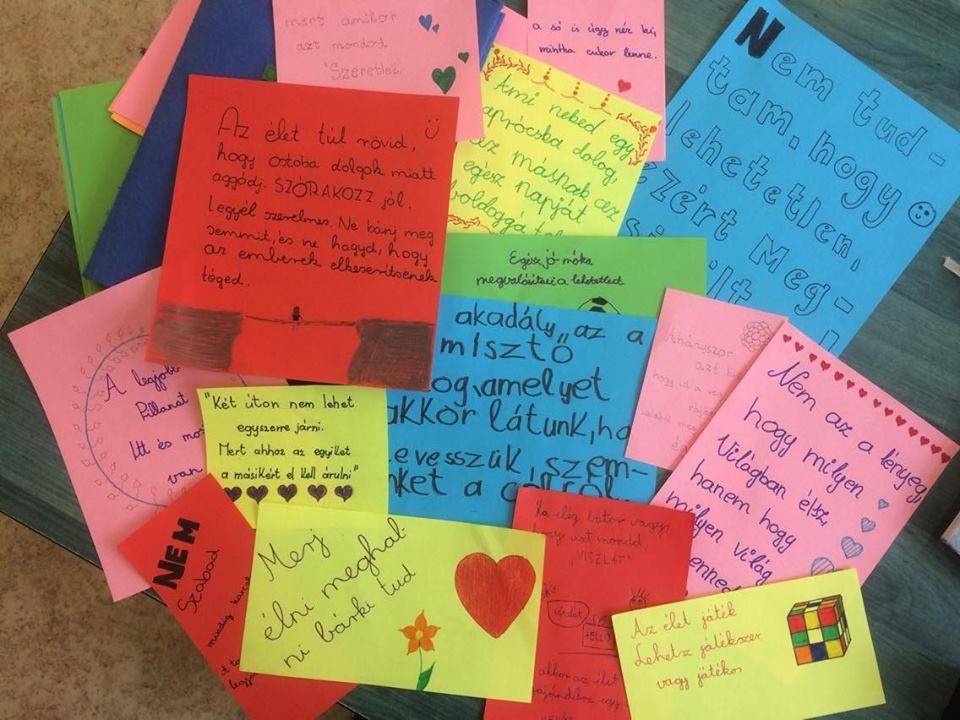 mert amikor
azt mondod
"Szeretlek"
a só is úgy néz ki,
mintha cukor lenne.
Nem tud-
tam, hogy
lehetetlen,
ezért Meg-
Ami neked egy
aprócska dolog,
az másnak az
egész napját
boldoggá
Az élet túl rövid,
hogy ostoba dolgok miatt
aggódj. SZÓRAKOZZ jól.
Legyél szerelmes. Ne bánj meg
semmit, és ne hagyd, hogy
az emberek elkeserítsenek
téged.
Egész jó móka
megvalósítani a lehetetlent
akadály, az a
misztő
og, amelyet
akkor látunk, ha
levesszük, szem-
nket a célról
Ahányszor
azt
hogy
Nem az a lényeg,
hogy milyen
Világban élsz,
hanem hogy
milyen világ
benned
A legjobb
Pillanat
Itt és mos
van
"Két úton nem lehet
egyszerre járni.
Mert ahhoz az egyiket
a másikért el kell árulni"
NEM
Szabad
mindig
Merj
élni meghal-
ni bárki tud
Ha elég bátor vagy,
hogy azt mondd,
"VISZLÁT"
akkor az élet
egy
Az élet játék
Lehetsz játékszer
vagy játékos